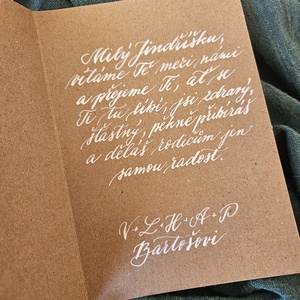 Milý Jindříšku,
vítáme Tě mezi námi
a přejeme Ti, ať se
Ti tu líbí, jsi zdravý,
šťastný, pěkně přibíráš
a děláš rodičům jen
samou radost.
V+L+H+A+P
Bartošovi